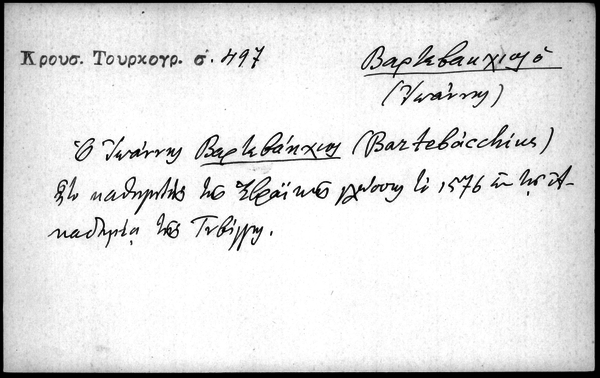 Κρουσ. Τουρκογρ. σ. 497
Βαρτεβακχιος ὁ
(Ἰωάννης)
Ὁ Ἰωάννης Βαρτεβάκχιος (Bartebácchius)
ἦτο καθηγητὴς τῆς Ἑβραϊκῆς γλώσσης τῷ 1576 ἐν τῇ Ἀ-
καδημίᾳ τῆς Τυβίγγης.